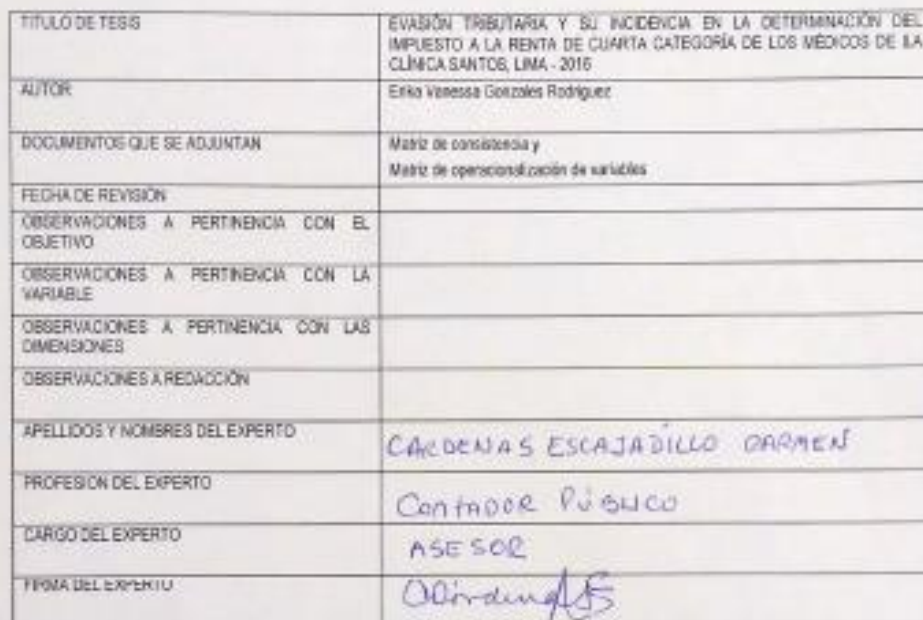 TITULO DE TESIS
EVASIÓN TRIBUTARIA Y SU INCIDENCIA EN LA DETERMINACIÓN DEL
IMPUESTO A LA RENTA DE CUARTA CATEGORÍA DE LOS MÉDICOS DE LA
CLÍNICA SANTOS, LIMA - 2016
AUTOR
Erika Vanessa Gonzales Rodriguez
DOCUMENTOS QUE SE ADJUNTAN
Matriz de consistencia y
Matriz de operacionalización de variables
FECHA DE REVISIÓN
OBSERVACIONES A PERTINENCIA CON EL
OBJETIVO
OBSERVACIONES A PERTINENCIA CON LA
VARIABLE
OBSERVACIONES A PERTINENCIA CON LAS
DIMENSIONES
OBSERVACIONES A REDACCIÓN
APELLIDOS Y NOMBRES DEL EXPERTO
CARDENAS ESCAJADILLO DARMEN
PROFESION DEL EXPERTO
CONTADOR PÚBLICO
CARGO DEL EXPERTO
ASESOR
FIRMA DEL EXPERTO